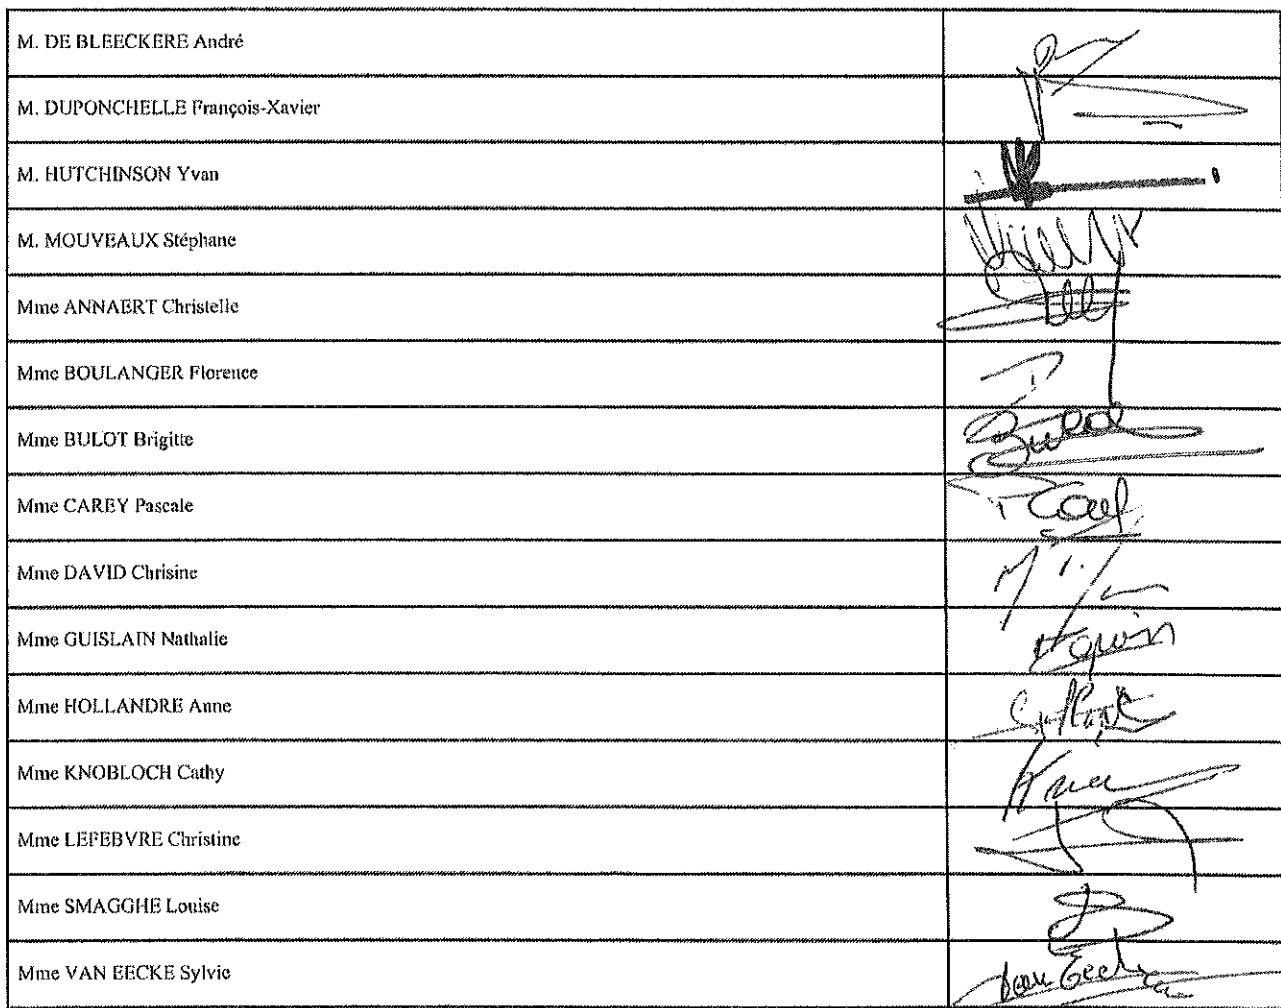 M. DE BLEECKERE André
M. DUPONCHELLE François-Xavier
M. HUTCHINSON Yvan
M. MOUVEAUX Stéphane
Mme ANNAERT Christelle
Mme BOULANGER Florence
Mme BULOT Brigitte
Mme CAREY Pascale
Mme DAVID Chrisine
Mme GUISLAIN Nathalie
Mme HOLLANDRE Anne
Mme KNOBLOCH Cathy
Mme LEFEBVRE Christine
Mme SMAGGHE Louise
Mme VAN EECKE Sylvie